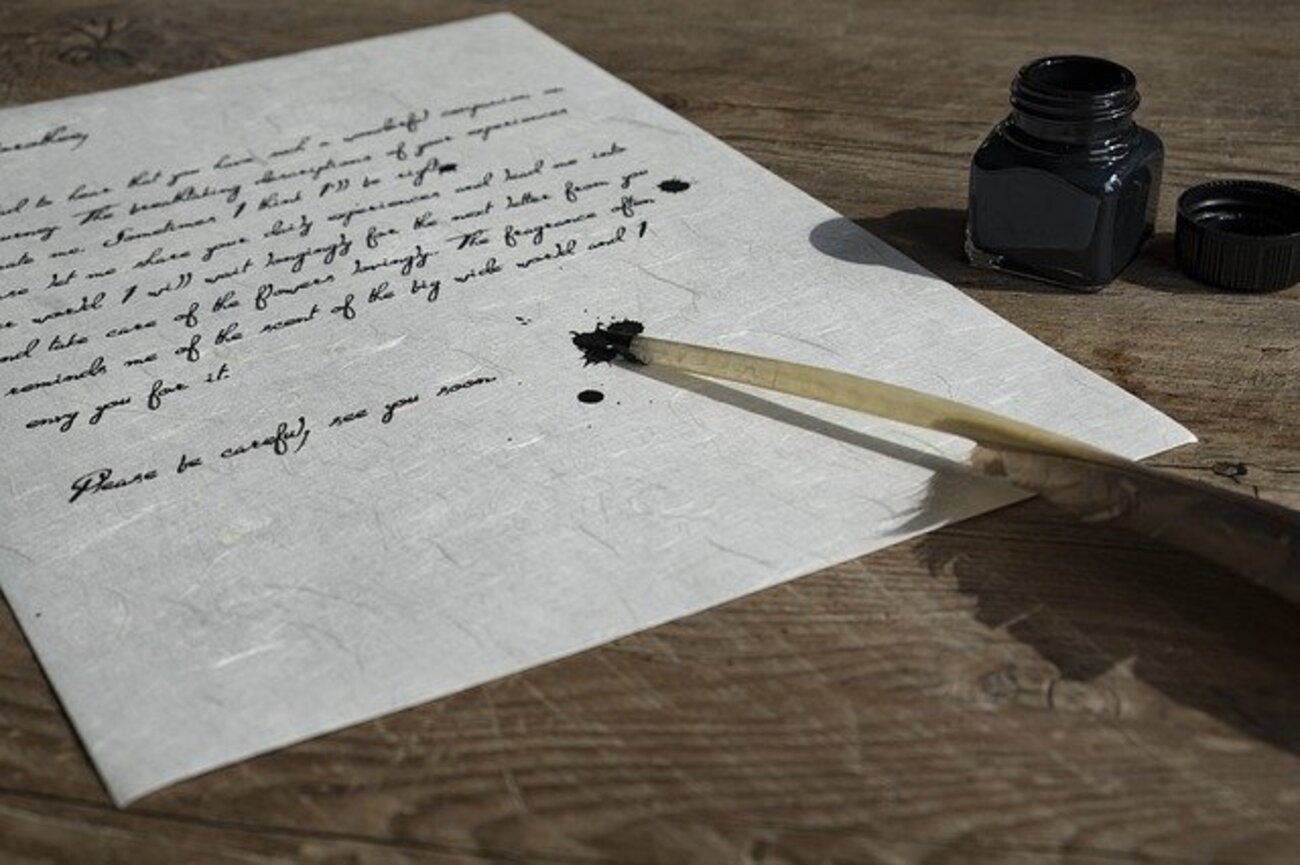 to have that you have such a wonderful companion on
The breathtaking descriptions of your experiences
me. Sometimes I think I'll be right
let me share your daily experiences and lead me into
world I will wait longingly for the next letter from you
take care of the flowers lovingly. The fragrance often
reminds me of the scent of the big wide world and I
envy you for it.
Please be careful, see you soon